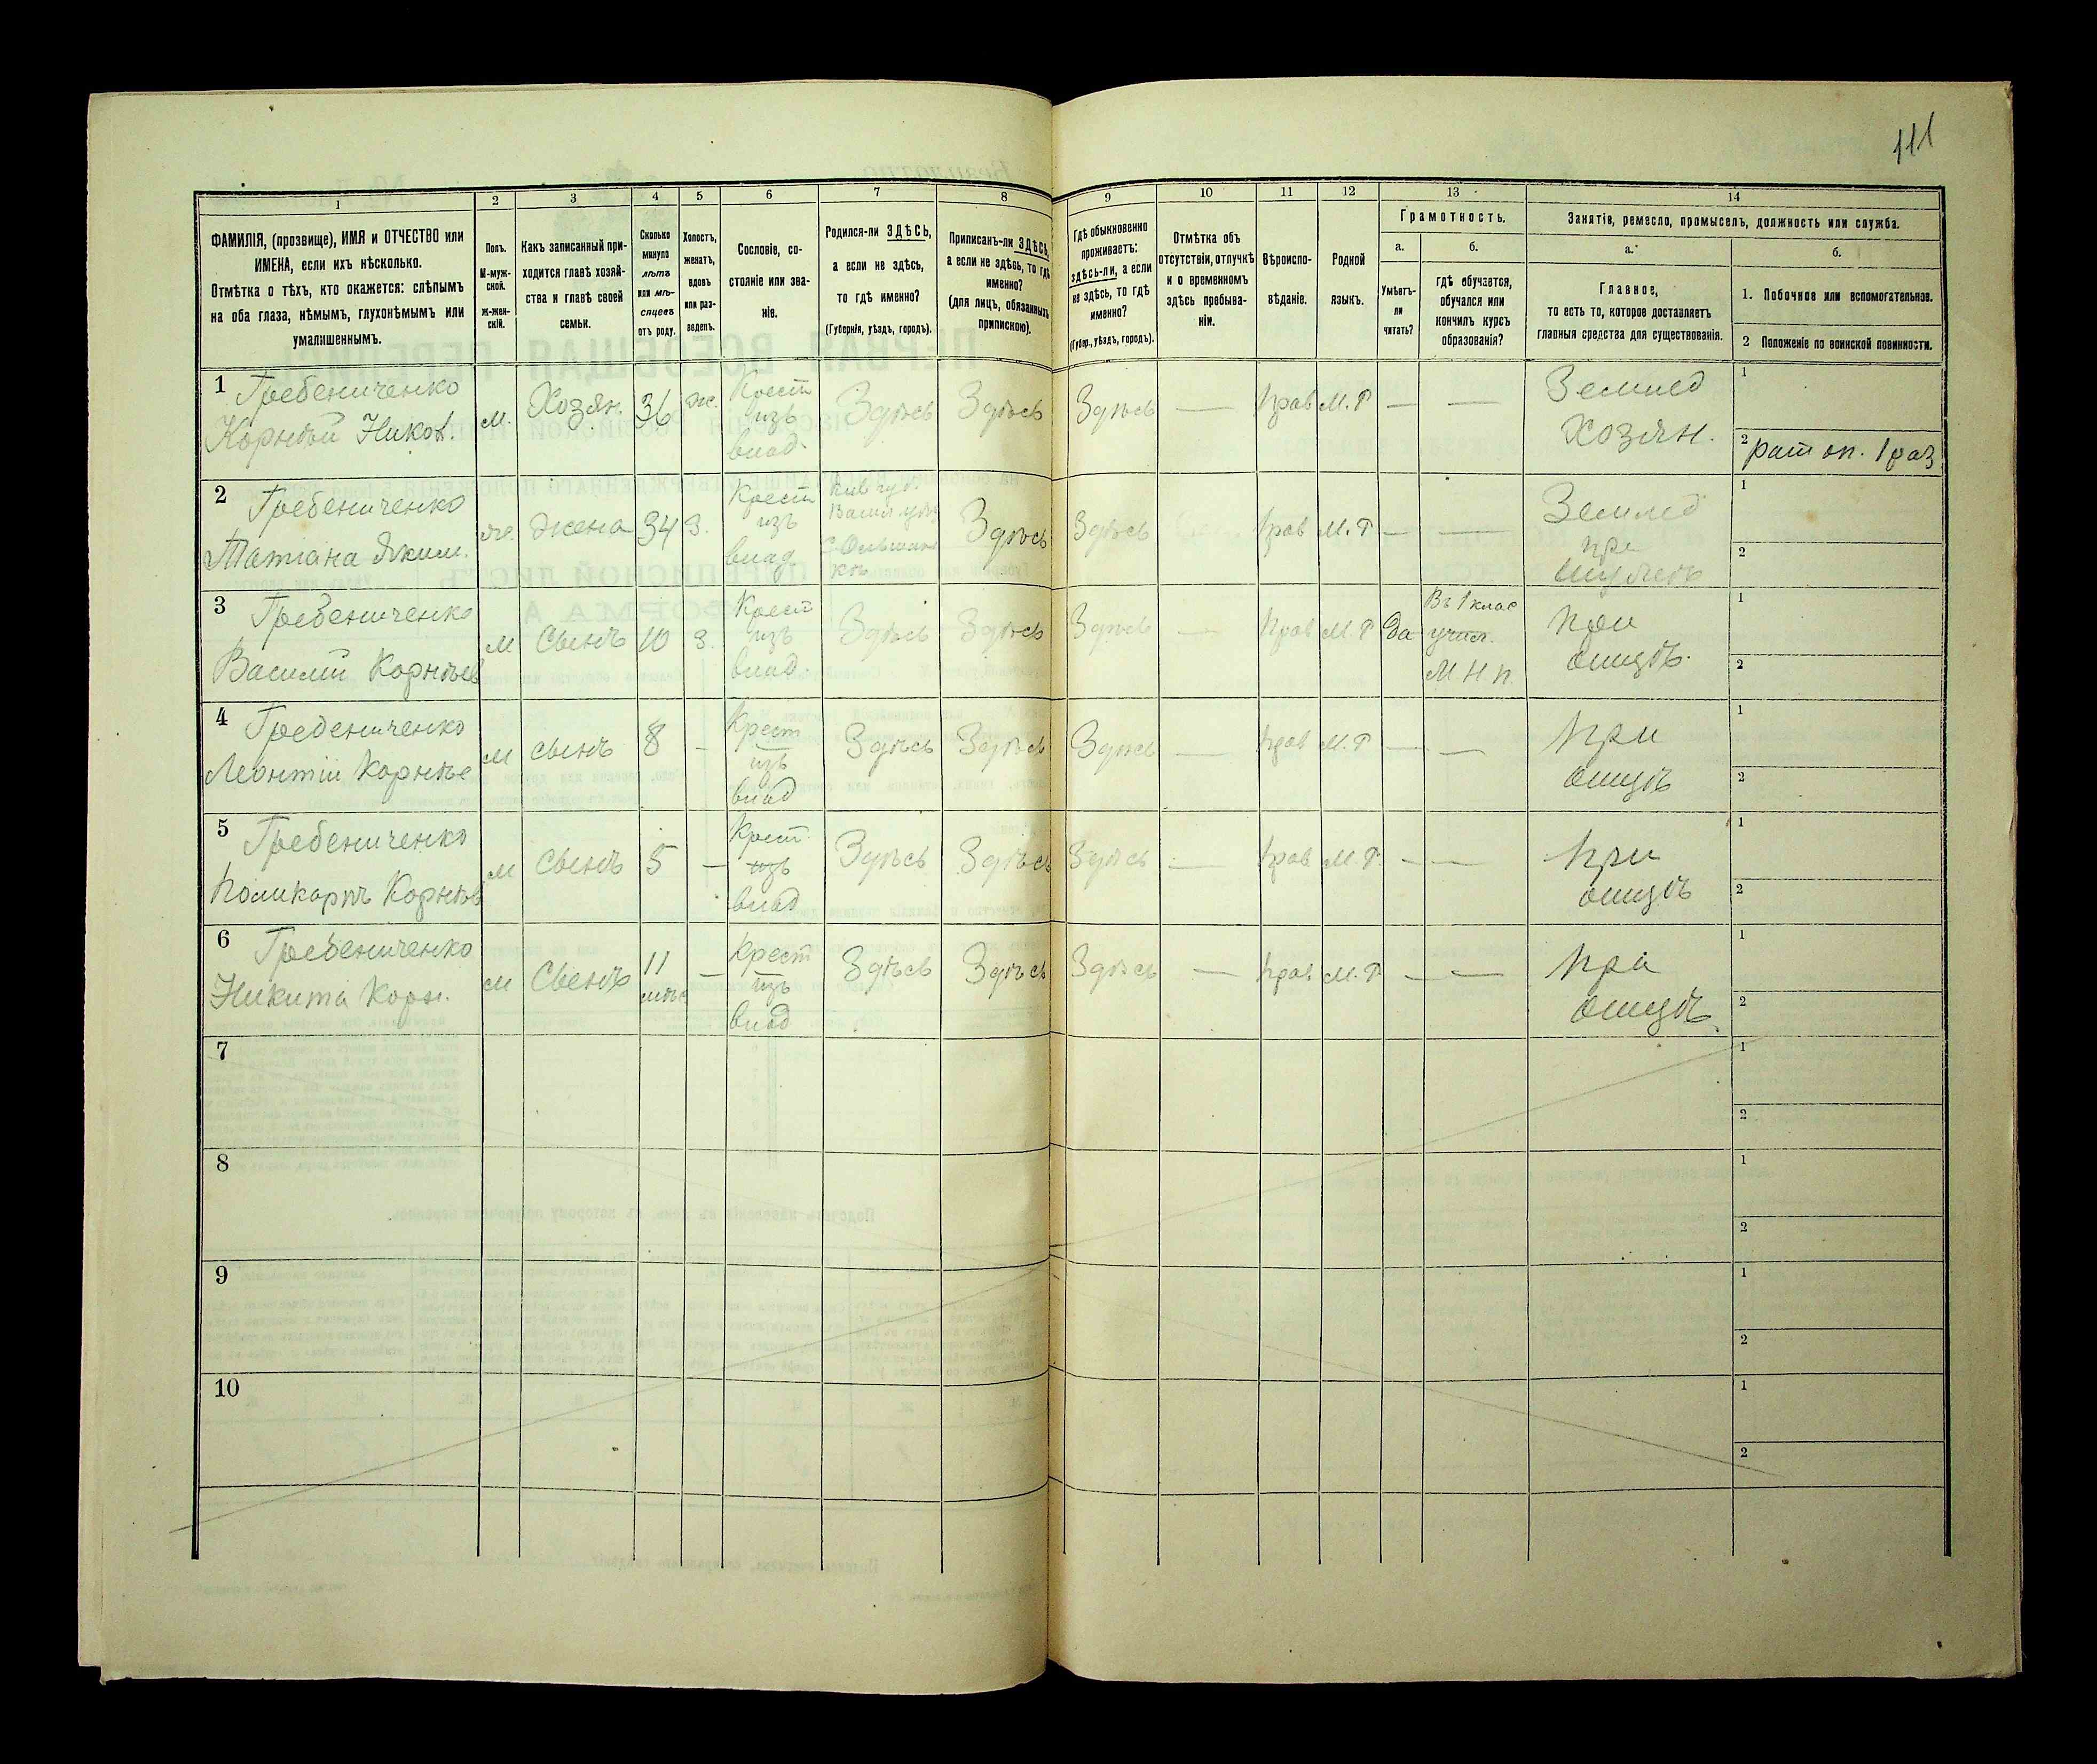 111
1
ФАМИЛІЯ, (прозвище), ИМЯ и ОТЧЕСТВО или
ИМЕНА, если ихъ нѣсколько.
Отмѣтка о тѣхъ, кто окажется: слѣпымъ
на оба глаза, нѣмымъ, глухонѣмымъ или
умалишеннымъ.
2
Полъ.
М-муж-
ской.
ж-жен-
скій.
3
Какъ записанный при-
ходится главѣ хозяй-
ства и главѣ своей
семьи.
4
Сколько
минуло
лѣтъ
или мѣ-
сяцевъ
отъ роду.
5
Холостъ,
женатъ,
вдовъ
или раз-
веденъ.
6
Сословіе, со-
стояніе или зва-
ніе.
7
Родился-ли ЗДѢСЬ,
а если не здѣсь,
то гдѣ именно?
(Губернія, уѣздъ, городъ).
8
Приписанъ-ли ЗДѢСЬ,
а если не здѣсь, то гдѣ
именно?
(для лицъ, обязанныхъ
припискою).
9
Гдѣ обыкновенно
проживаетъ:
здѣсь-ли, а если
не здѣсь, то гдѣ
именно?
(Губер., уѣздъ, городъ).
10
Отмѣтка объ
отсутствіи, отлучкѣ
и о временномъ
здѣсь пребыва-
ніи.
11
Вѣроиспо-
вѣданіе.
12
Родной
языкъ.
13
Грамотность.
а.
Умѣетъ-
ли
читать?
б.
гдѣ обучается,
обучался или
кончилъ курсъ
образованія?
14
Занятіе, ремесло, промыселъ, должность или служба.
а.
Главное,
то есть то, которое доставляетъ
главныя средства для существованія.
б.
1. Побочное или вспомогательное.
2 Положеніе по воинской повинности.
1 Гребениченко
Корнѣй Никол.
м.
Хозян.
36
ж.
Крест
изъ
влад.
Здѣсь
Здѣсь
Здѣсь
—
Прав
М. Р
—
—
Землед
Хозян.
1
2 рат оп. 1 раз
2 Гребениченко
Татіана Яким.
же.
жена
34
З.
Крест
изъ
влад.
Кив губ.
Васил. уѣз
Здѣсь
Здѣсь
Прав
М. Р
—
—
Землед
при
мужѣ
1
2
3 Гребениченко
Василій Корнѣев
м
Сынъ
10
З.
Крест
изъ
влад.
Здѣсь
Здѣсь
Здѣсь
—
Прав
М. Р
Да
Въ 1 клас
учил.
М Н П.
при
отцѣ.
1
2
4 Гребениченко
Леонтій Корнѣе
м
сынъ
8
—
Крест
изъ
влад
Здѣсь
Здѣсь
Здѣсь
—
Прав
М. Р
—
—
при
отцѣ
1
2
5 Гребениченко
Поликарпъ Корнѣев
м
Сынъ
5
—
Крест
изъ
влад
Здѣсь
Здѣсь
Здѣсь
—
Прав
М. Р
—
—
при
отцѣ
1
2
6 Гребениченко
Никита Корн.
м
Сынъ
11
мѣс
—
Крест
изъ
влад
Здѣсь
Здѣсь
Здѣсь
—
Прав
М. Р
—
—
при
отцѣ.
1
2
7
1
2
8
1
2
9
1
2
10
1
2